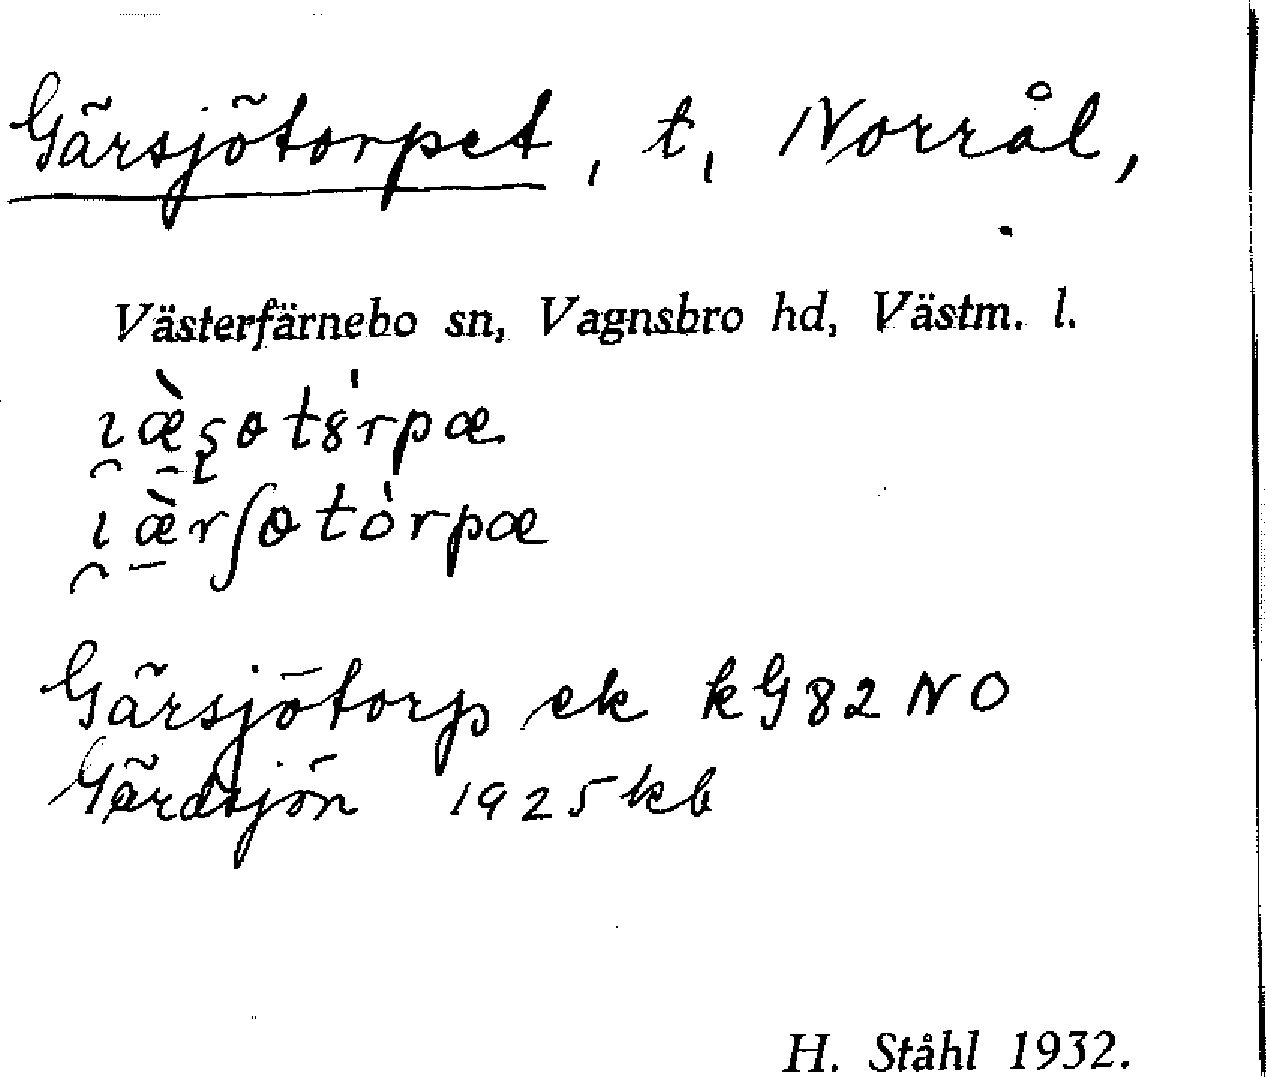 Gärsjötorpet, t, Norrål,
Västerfärnebo sn, Vagnsbro hd, Västm. l.
Gärsjötorp ek kG82 NO
Gärdsjön 1925 kb
H. Ståhl 1932.